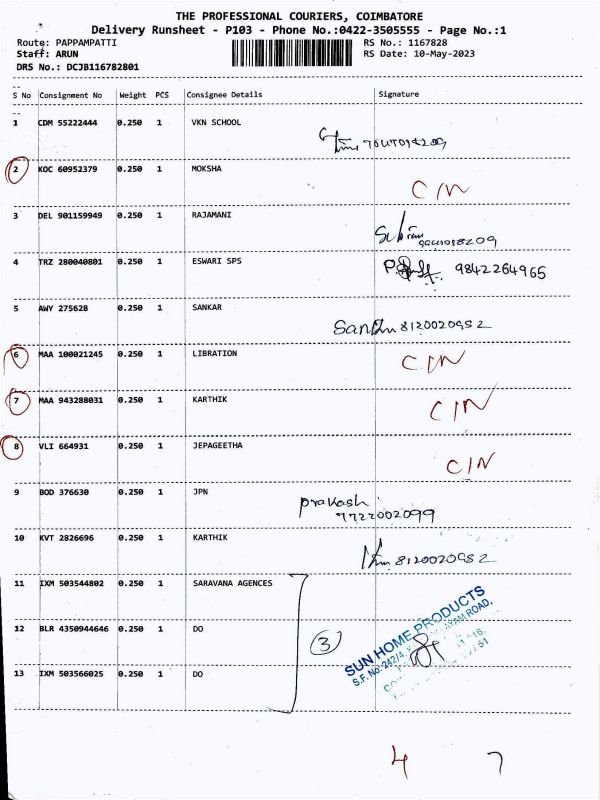 THE PROFESSIONAL COURIERS, COIMBATORE
Delivery Runsheet - P103 - Phone No.:0422-3505555 - Page No.:1
Route: PAPPAMPATTI RS No.: 1167828
Staff: ARUN RS Date: 10-May-2023
DRS No.: DCJB116782801
S No Consignment No Weight PCS Consignee Details Signature
1 CDM 55222444 0.250 1 VKN SCHOOL
2 KOC 60952379 0.250 1 MOKSHA CIN
3 DEL 901159949 0.250 1 RAJAMANI
4 TRZ 280040801 0.250 1 ESWARI SPS 9842264965
5 AWY 275628 0.250 1 SANKAR 8120020982
6 MAA 100021245 0.250 1 LIBRATION CIN
7 MAA 943288031 0.250 1 KARTHIK CIN
8 VLI 664931 0.250 1 JEPAGEETHA CIN
9 BOD 376630 0.250 1 JPN prakash
7722002099
10 KVT 2826696 0.250 1 KARTHIK 8120020982
11 IXM 503544802 0.250 1 SARAVANA AGENCES
12 BLR 4350944646 0.250 1 DO 3
SUN HOME PRODUCTS
S.F. No. 242/4
13 IXM 503566025 0.250 1 DO
4 7